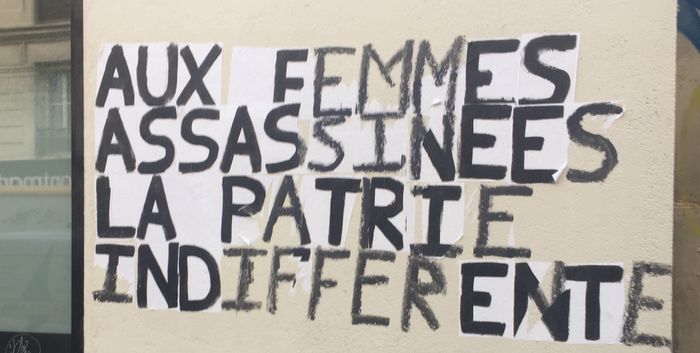 AUX FEMMES
ASSASSINEES
LA PATRIE
INDIFFERENTE